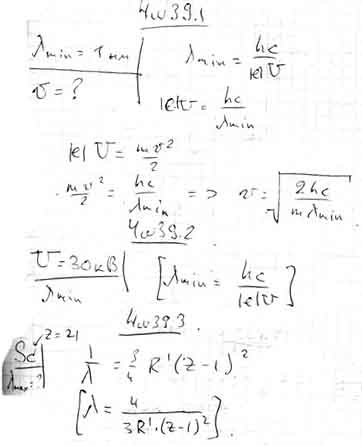 4ω39.1
λmin = 1 нм
λmin = hc/|e|U
v = ?
|e|U = hc/λmin
|e|U = mv²/2
mv²/2 = hc/λmin => v = √(2hc/mλmin)
4ω39.2
U = 30кВ
λmin
[λmin = hc/|e|U]
4ω39.3
Sc z = 21
λmax = ?
1/λ = 3/4 R'(z-1)²
[λ = 4/3R'·(z-1)²].